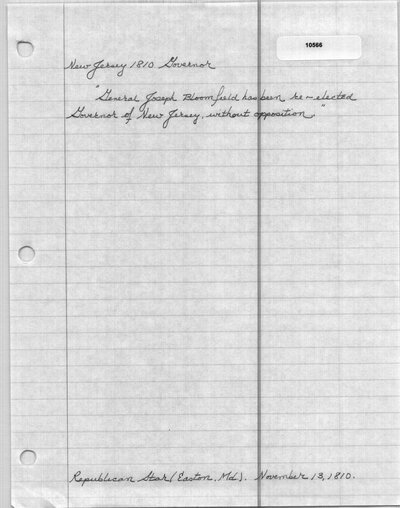 10566
New Jersey 1810 Governor
"General Joseph Bloomfield has been re-elected
Governor of New Jersey, without opposition."
Republican Star (Easton, Md). November 13, 1810.